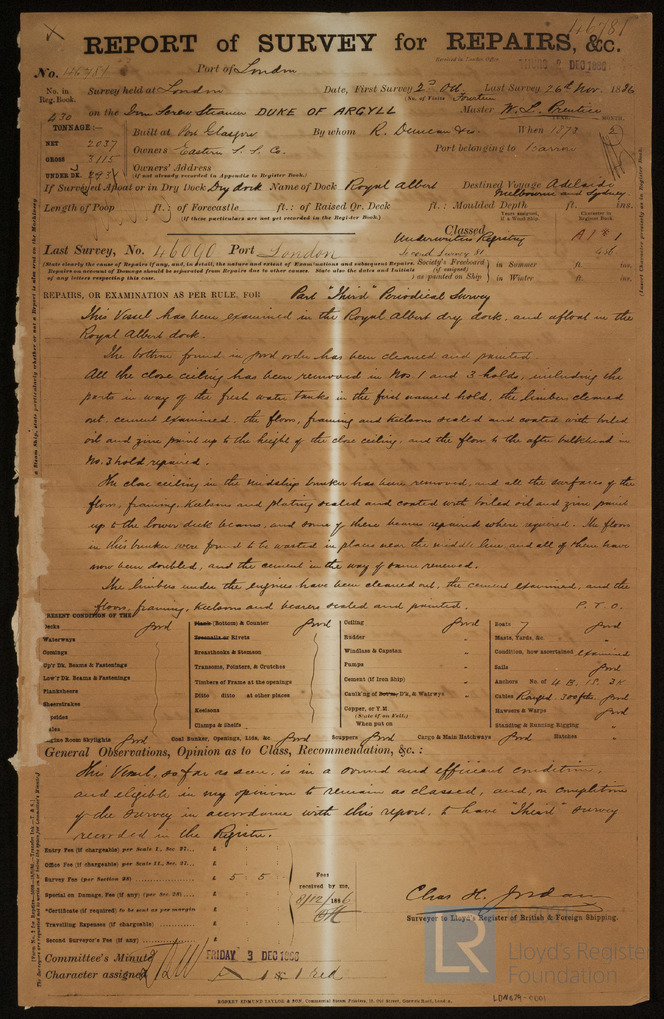 46781
REPORT of SURVEY for REPAIRS, &c.
Received in London Office
No. 46781 Port of London
THURS 2 DEC 1886
No. in Reg. Book. Survey held at London Date, First Survey 2nd Oct. Last Survey 26th Nov. 1886
(No. of Visits Fourteen
430 on the Iron Screw Steamer DUKE OF ARGYLL Master W. L. Prentice
TONNAGE:— Built at Port Glasgow By whom R. Duncan & Co. When 1873
YEAR. MONTH.
NET 2037 Owners Eastern S. S. Co. Port belonging to Barrow
GROSS 3115 Owners' Address
UNDER DK. (If not already recorded in Appendix to Register Book.)
If Surveyed Afloat or in Dry Dock Dry dock Name of Dock Royal Albert Destined Voyage Adelaide
Melbourne and Sydney
Length of Poop ft.; of Forecastle ft.: of Raised Qr. Deck ft.: Moulded Depth ft. ins.
(If these particulars are not yet recorded in the Register Book.)
Years assigned, if a Wood Ship
Character in Register Book
Classed
Last Survey, No. 46090 Port London
Underwriters Registry A 1
(State clearly the cause of Repairs if any, and, in detail, the nature and extent of Examinations and subsequent Repairs.
Repairs on account of Damage should be separated from Repairs due to other causes. State also the dates and Initials
of any letters respecting this case.
Society's Freeboard (if assigned) as painted on Ship in Summer ft. ins.
in Winter ft. ins.
REPAIRS, OR EXAMINATION AS PER RULE, FOR Part "Third" Periodical Survey
This Vessel has been examined in the Royal Albert dry dock, and afloat in the
Royal Albert dock.
The bottom found in good order has been cleaned and painted.
All the close ceiling has been removed in Nos 1 and 3 holds, including the
parts in way of the fresh water tanks in the first named hold, the limbers cleaned
out, cement examined, the floors, framing and keelsons scaled and coated with boiled
oil and zinc paint up to the height of the close ceiling, and the floor to the after bulkhead in
No. 3 hold repaired.
The close ceiling in the midship bunker has been removed, and all the surfaces of the
floors, framing, keelsons and plating scaled and coated with boiled oil and zinc paint
up to the lower deck beams, and some of these beams repaired where required. The floors
in this bunker were found to be wasted in places near the middle line, and all of them have
now been doubled, and the cement in the way of same renewed.
The limbers under the engines have been cleaned out, the cement examined, and the
floors, framing, keelsons and bearers scaled and painted. P. T. O.
RESENT CONDITION OF THE
ecks good
Waterways
Comings
Up'r Dk. Beams & Fastenings
Low'r Dk. Beams & Fastenings
Planksheers
Sheerstrakes
Plank (Bottom) & Counter good
Treenails or Rivets
Breasthooks & Stemson
Transoms, Pointers, & Crutches
Timbers of Frame at the openings
Ditto ditto at other places
Keelsons
Clamps & Shelfs
Ceiling good
Rudder "
Windlass & Capstan "
Pumps "
Cement (if Iron Ship) "
Caulking of Betw. D'k, & Watrwys "
Copper, or Y.M.
(State if on Felt.)
When put on
Boats 7 good
Masts, Yards, &c. "
Condition, how ascertained examined
Sails good
Anchors No. of 4 B. 1 S. 2 K
Cables Ranged. 300 fms. good
Hawsers & Warps good
Standing & Running Rigging "
ngine Room Skylights good Coal Bunker, Openings, Lids, &c. good Scuppers good Cargo & Main Hatchways good Hatches "
General Observations, Opinion as to Class, Recommendation, &c. :
This Vessel, so far as seen, is in a sound and efficient condition,
and eligible in my opinion to remain as classed, and, on completion
of the survey in accordance with this report, to have "Third" survey
recorded in the Register.
Entry Fee (if chargeable) per Scale I., Sec. 27... £
Office Fee (if chargeable) per Scale II., Sec. 27... £
Survey Fee (per Section 28) £ 5 5
Special on Damage, Fee (if any) (per Sec. 28) £
*Certificate (if required) to be sent as per margin
Travelling Expenses (if chargeable) £
Second Surveyor's Fee (if any) £
Fees
received by me,
8/12/1886
Chas. H. Jordan
Surveyor to Lloyd's Register of British & Foreign Shipping.
Committee's Minute FRIDAY 3 DEC 1886
Character assigned
LR
Lloyd's Register
Foundation
LDN879-0001